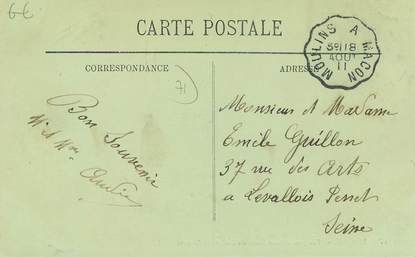 6E
CARTE POSTALE
MOULINS A MACON
18
AOUT
11
CORRESPONDANCE
71
ADRESSE
Bon Souvenir
M et Mme
Monsieur et Madame
Emile Guillon
37 rue des Arts
a Levallois Perret
Seine